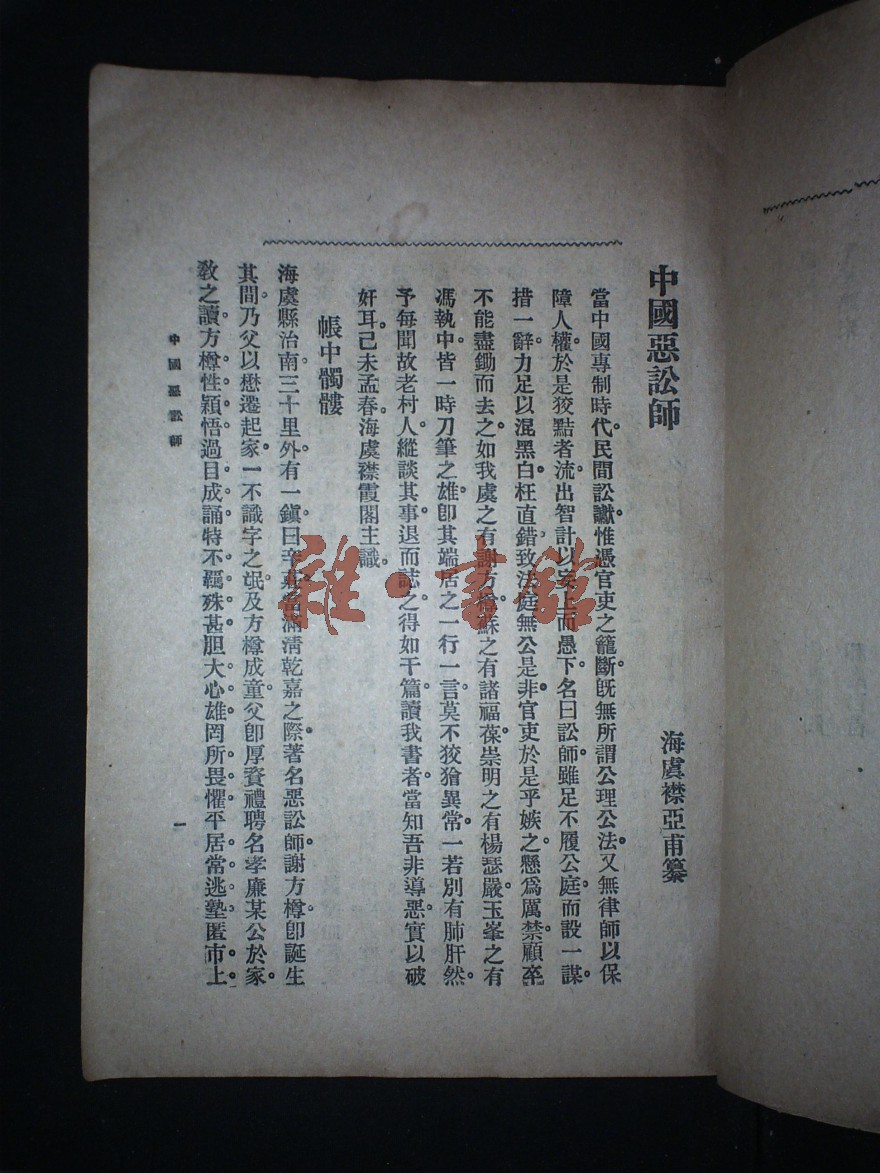 中國惡訟師
海虞襟亞甫纂
當中國專制時代。民間訟讞。惟憑官吏之籠斷。旣無所謂公理公法。又無律師以保
障人權。於是狡黠者流。出智計以妄上而愚下。名曰訟師。雖足不履公庭。而設一謀。
措一辭。力足以混黑白。枉直錯。致法庭無公是非。官吏於是乎嫉之。懸爲厲禁。顧卒
不能盡鋤而去之。如我虞之有謝方樽。蘇之有諸福葆。崇明之有楊瑟嚴。玉峯之有
馮執中。皆一時刀筆之雄。卽其端居之一行一言。莫不狡獪異常。一若別有肺肝然。
予每聞故老村人。縱談其事。退而誌之。得如干篇。讀我書者。當知吾非導惡。實以破
奸耳。己未孟春。海虞襟霞閣主識。
帳中髑髏
海虞縣治南三十里外。有一鎭曰辛莊。當滿淸乾嘉之際。著名惡訟師謝方樽。卽誕生
其間。乃父以懋遷起家。一不識字之氓。及方樽成童。父卽厚資禮聘名孝廉某公於家。
敎之讀。方樽性穎悟。過目成誦。特不羈殊甚。胆大心雄。罔所畏懼。平居常逃塾匿市上。
中國惡訟師
一
雜·書館